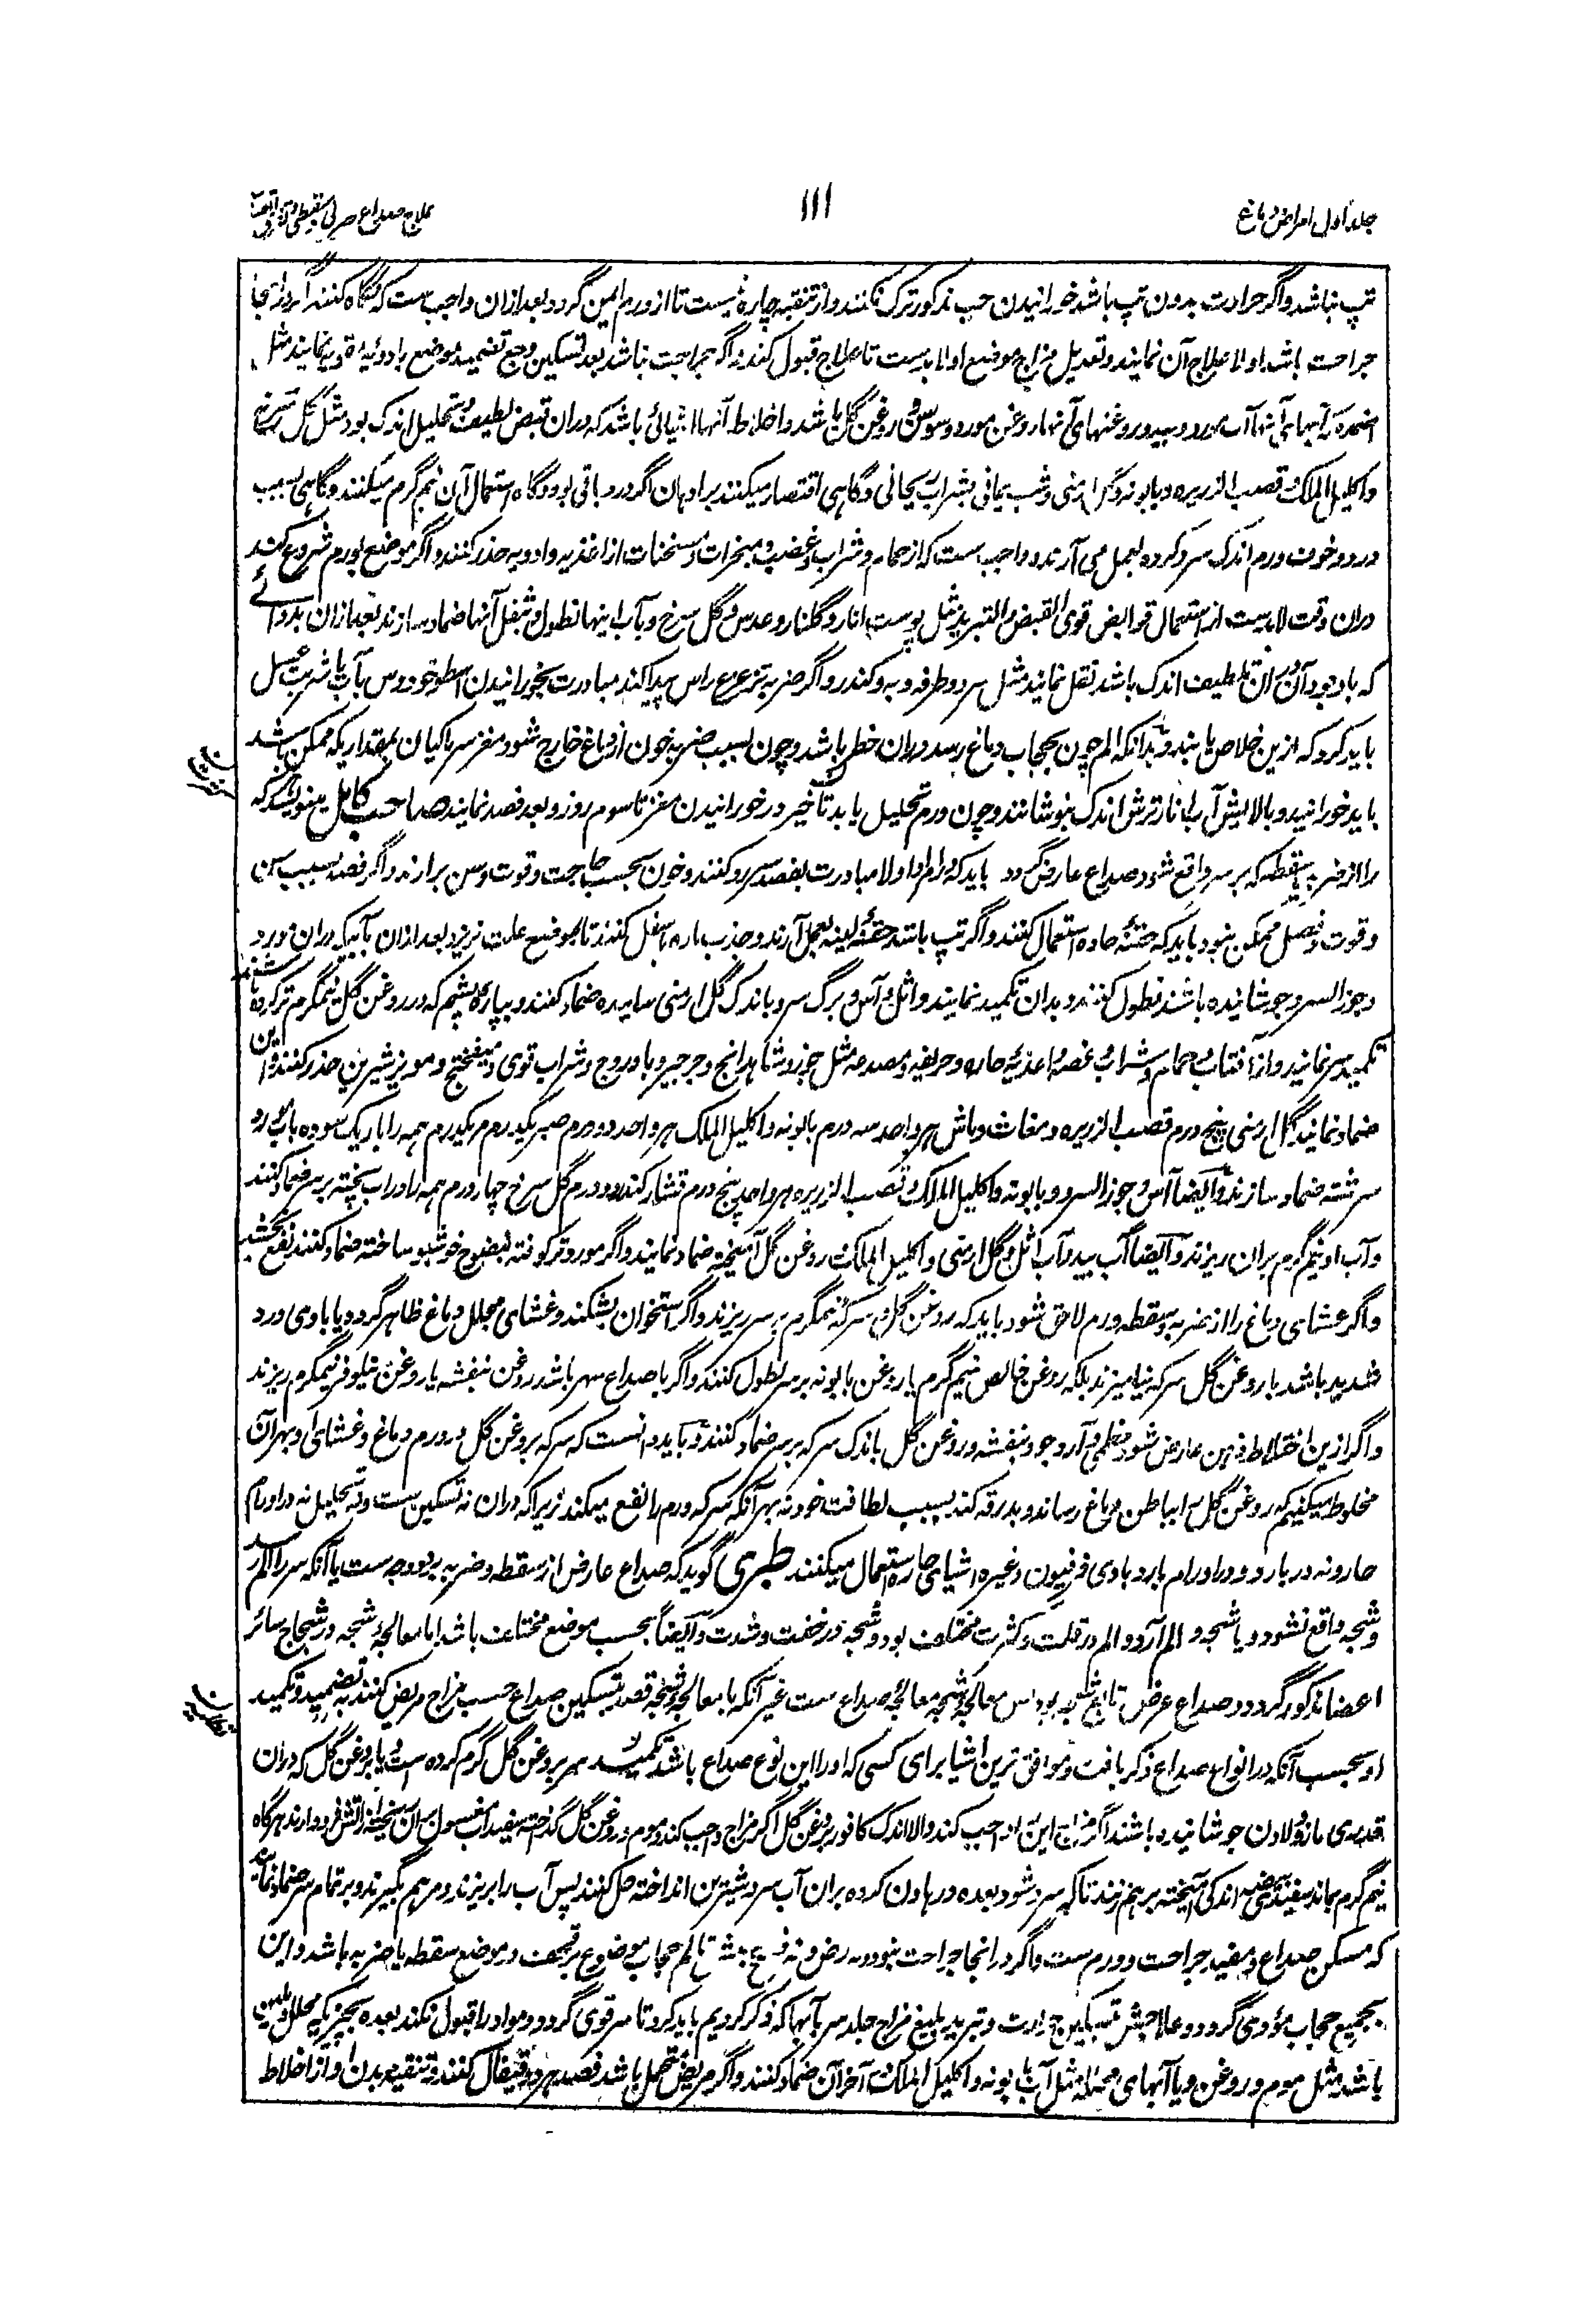 جلد اول امراض دماغ
۱۱۱
علاج صداع ضربی و سقطی
تپ نباشد و اگر حرارت بدون تپ باشد خورانیدن حب مذکور ترک نکنند و از تنقیه چاره نیست تا از ورم ایمن گردد بعد ازان واجب ست که نگاه کنند اگر در آنجا
جراحت باشد اولا علاج آن نمایند و تعدیل مزاج موضع اولا بایست تا علاج قبول کند و اگر جراحت نباشد بعد تسکین وجع تضمید موضع بادویه قویه نمایند مثل
آب مورد و بید و روغنهای آنها روغن مورد و سوسن و روغن گل باشد و اخلاط آنها اشیائی باشد که دران قبض لطیف و تحلیل اندک بود مثل گل سرخ
و اکلیل الملک و قصب الزریره و بابونه و گل ارمنی و شب یمانی بشراب ریحانی و گاهی اقتصار میکنند بر ادهان اگر درد باقی بود و گاه استعمال آن نیم گرم میکنند و گاهی بسبب
درد و خوف ورم اندک سرد کرده بعمل می آرند و واجب ست که از حمام و شراب و غضب و مبخرات و مسخنات از اغذیه و ادویه حذر کنند و اگر موضع بورم شروع کند
دران وقت لابد ست از استعمال قوابض قوی القبض و التبرید مثل پوست انار و گلنار و عدس و گل سرخ و بآب اینها نطول و بثفل آنها ضماد سازند بعد ازان بدوائے
که باوجود آن دران تلطیف اندک باشد نقل نمایند مثل سرو و طرفه و به و کندر و اگر ضربه تزعزع راس پیدا کند مبادرت بخورانیدن اسطوخودوس بآب یا شربت عسل
باید کرد که ازین خلاص یابند و بدانکه الم چون بحجاب دماغ رسد دران خطر باشد و چون بسبب ضربه خون از دماغ خارج شود مغز سر ماکیان بمقداریکه ممکن باشد
باید خورانید و بالایش آب انار ترش اندک بنوشانند و چون ورم تحلیل یابد تاخیر در خورانیدن مغز تا سوم روز و بعد فصد نمایند صاحب کامل مینویسد که
را از ضربه یا سقطه که بر سر واقع شود صداع عارض گردد باید که اولا مبادرت بفصد سررو کنند و خون بحسب حاجت و قوت و سن برارند و اگر فصد بسبب سن
و قوت و فصل ممکن نبود باید که حقنه حاده استعمال کنند و اگر تپ باشد حقنه لینه بعمل آرند و جذب ماده باسفل کنند تا بموضع علت نریزد بعد ازان بآبیکه دران مورد
و جوز السرو جوشانیده باشند نطول کنند و بدان تکمید نمایند و اثل و آس و برگ سرو باندک گل ارمنی سائیده ضماد کنند و بپاره پشم که در روغن گل نیمگرم تر کرده باشند
تکمید سر نمایند و از آفتاب و حمام و شراب و غضب و اغذیه حاره و حریفه و مصدعه مثل جوز و شاهدانج و جرجیر و بادروج و شراب قوی و میفختج و مویز شیرین حذر کنند و این
ضماد نمایند گل ارمنی پنج درم قصب الزریره و مغاث و ماش هر واحد سه درم بابونه و اکلیل الملک هر واحد دو درم صبر یکدرم مر یکدرم همه را باریک سوده بآب مورد
سرشته ضماد سازند و ایضا آس و جوز السرو و بابونه و اکلیل الملک و قصب الزریره هر واحد پنج درم قشار کندر دو درم گل سرخ چهار درم همه را در آب پخته بر سر ضماد کنند
و آب او نیم گرم بران ریزند و ایضا آب بید و آب اثل و گل ارمنی و اکلیل الملک و روغن گل آمیخته ضماد نمایند و اگر مورد تر کوفته بمطبوخ خوشبو ساخته ضماد کنند نفع بخشد
و اگر غشای دماغ را از ضربه و سقطه ورم لاحق شود باید که روغن گل و سرکه نیمگرم بر سر ریزند و اگر استخوان بشکند و غشای مجلل دماغ ظاهر گردد یا با وی درد
شدید باشد با روغن گل سرکه نیامیزند بلکه روغن خالص نیم گرم یا روغن بابونه بر سر نطول کنند و اگر با صداع سهر باشد روغن بنفشه یا روغن نیلوفر نیمگرم ریزند
و اگر ازین اختلاط ذهن عارض شود خطمی و آرد جو و بنفشه و روغن گل باندک سرکه بر سر ضماد کنند و باید دانست که سرکه بروغن گل در ورم دماغ و غشای او بهر آن
مخلوط میکنیم که روغن گل را بباطن دماغ رساند و بدرقه کند بسبب لطافت خود نه بهر آنکه سرکه ورم را نفع میکند زیرا که دران نه تسکین ست و نه تحلیل نه در اورام
حار و نه در بارد و در اورام بارد با وی فرفیون و غیره اشیای حاره استعمال میکنند طبری گوید که صداع عارض از سقطه و ضربه بر دو وجه ست یا آنکه سر را الم رسد
و شجه واقع نشود و یا شجه و الم آرد و الم در قلت و کثرت مختلف بود و شجه در خفت و شدت و ایضا بحسب موضع مختلف باشد اما معالجه شجه در شجاج سائر
اعضا مذکور گردد و صداع عرض تابع شجه بود پس معالجه شجه معالجه صداع ست غیر آنکه با معالجه شجه قصد تسکین صداع حسب مزاج مریض کنند به تضمید و تکمید
او بحسب آنکه در انواع صداع ذکر یافت و موافق ترین اشیا برای کسی که او را این نوع صداع باشد تکمید سر بروغن گل گرم کرده است و یا بروغن گل که دران
قدری مازو و لادن جوشانیده باشند اگر مزاج این را واجب کند والا اندک کافور بروغن گل اگر مزاج واجب کند و موم در روغن گل گداخته سفیداب مغسول بران بیخته از آتش فرود آرند هرگاه
نیم گرم بماند سفیدی بیضه اندکی آمیخته برهم زنند تا که سرد شود بعده در هاون کرده بران آب سرد شیرین انداخته حل کنند پس آب را بریزند و مرهم بگیرند و بر تمام سر ضماد نمایند
که مسکن صداع و مفید جراحت و ورم ست و اگر در آنجا جراحت نبود و نه رض و نه فسخ الم حجاب موضوع بر قحف در موضع سقطه یا ضربه باشد و این
بجمیع حجاب مؤدی گردد و علاجش تسکین حرارت و تبرید بلیغ مزاج جلد سر بآبها که ذکر کردیم باید کرد تا سر قوی گردد و مواد را قبول نکند بعده بچیزیکه محلل و ملین
باشد مثل موم و روغن و یا آبهای محلله مثل آب بابونه و اکلیل الملک آخر آن ضماد کنند و اگر مریض متحمل باشد فصد هر دو قیفال کنند و تنقیه بدن او از اخلاط